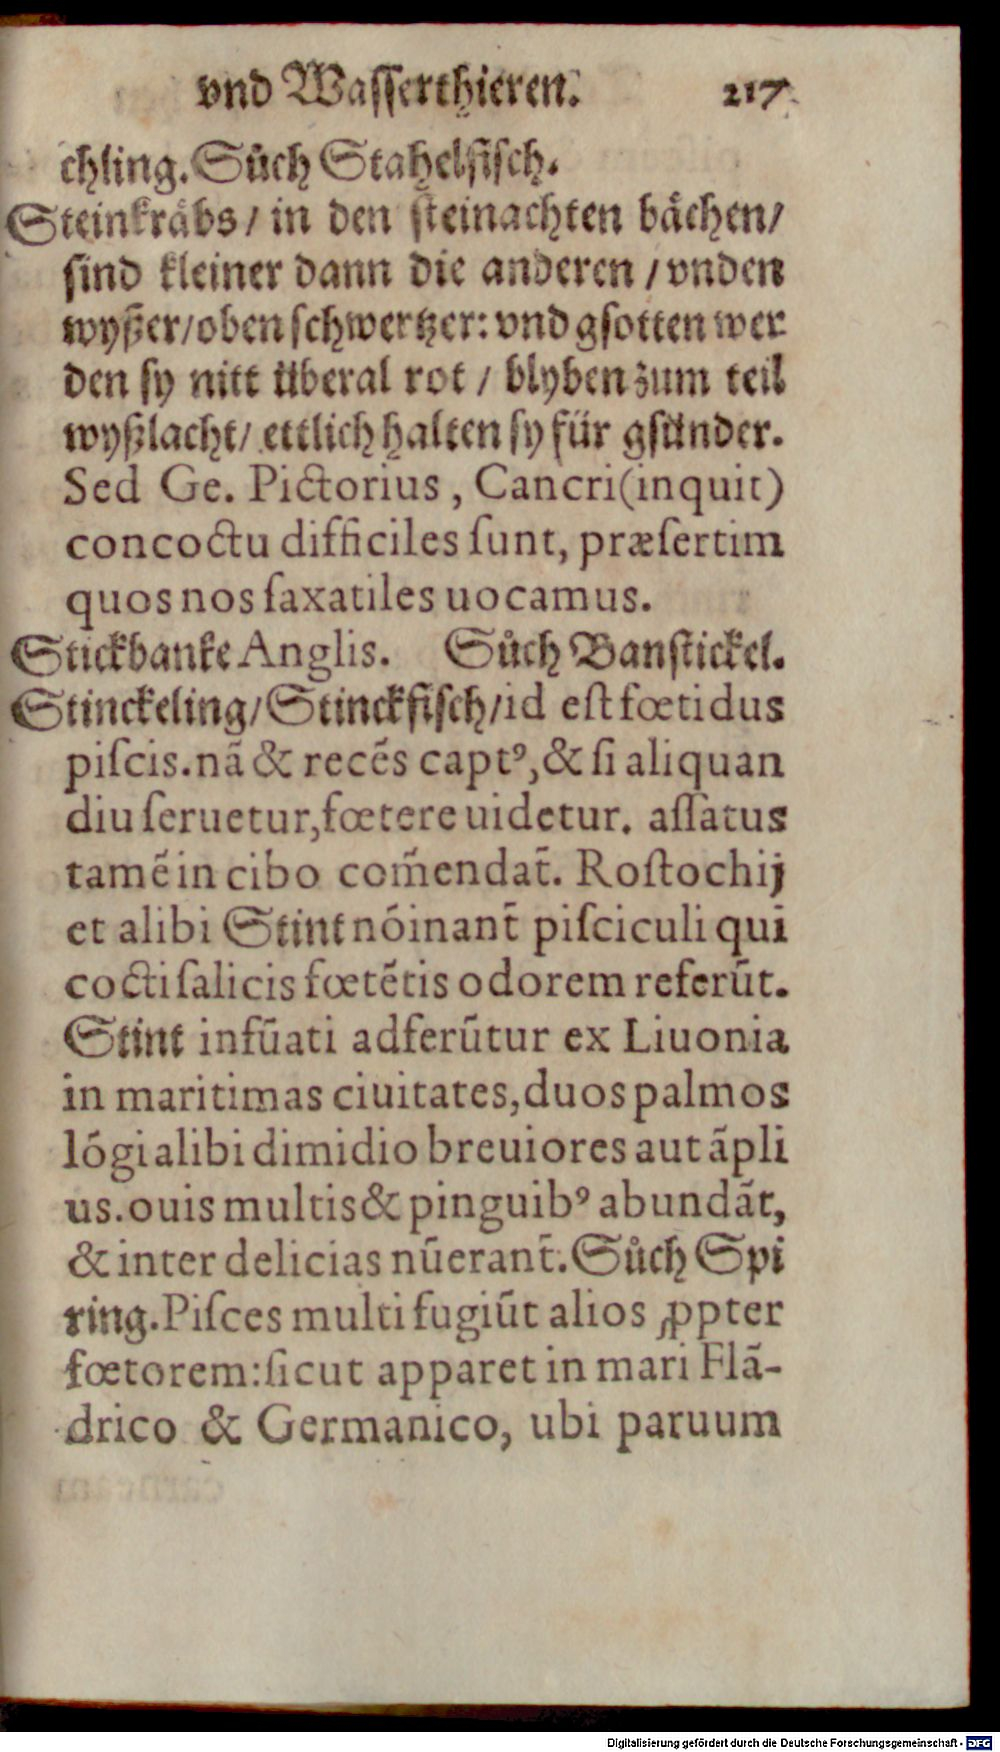 vnd Wasserthieren. 217
chling. Sůch Stahelfisch.
Steinkräbs / in den steinachten bächen /
sind kleiner dann die anderen / vnden
wyßer / oben schwertzer: vnd gsotten wer
den sy nitt überal rot / blyben zum teil
wyßlacht / ettlich halten sy für gsünder.
Sed Ge. Pictorius, Cancri (inquit)
concoctu difficiles ſunt, præſertim
quos nos ſaxatiles uocamus.
Stickbanke Anglis. Sůch Banstickel.
Stinckeling / Stinckfisch / id eſt fœtidus
piſcis. nã & recẽs captꝰ, & ſi aliquan
diu ſeruetur, fœtere uidetur. aſſatus
tamẽ in cibo com̃endat̃. Roſtochij
et alibi Stint nõinant̃ piſciculi qui
cocti ſalicis fœtẽtis odorem referũt.
Stint infũati adferũtur ex Liuonia
in maritimas ciuitates, duos palmos
lõgi alibi dimidio breuiores aut ãpli
us. ouis multis & pinguibꝰ abundãt,
& inter delicias nũerant̃. Sůch Spi
ring. Piſces multi fugiũt alios ꝓpter
fœtorem: ſicut apparet in mari Flã-
drico & Germanico, ubi paruum
Digitalisierung gefördert durch die Deutsche Forschungsgemeinschaft - DFG